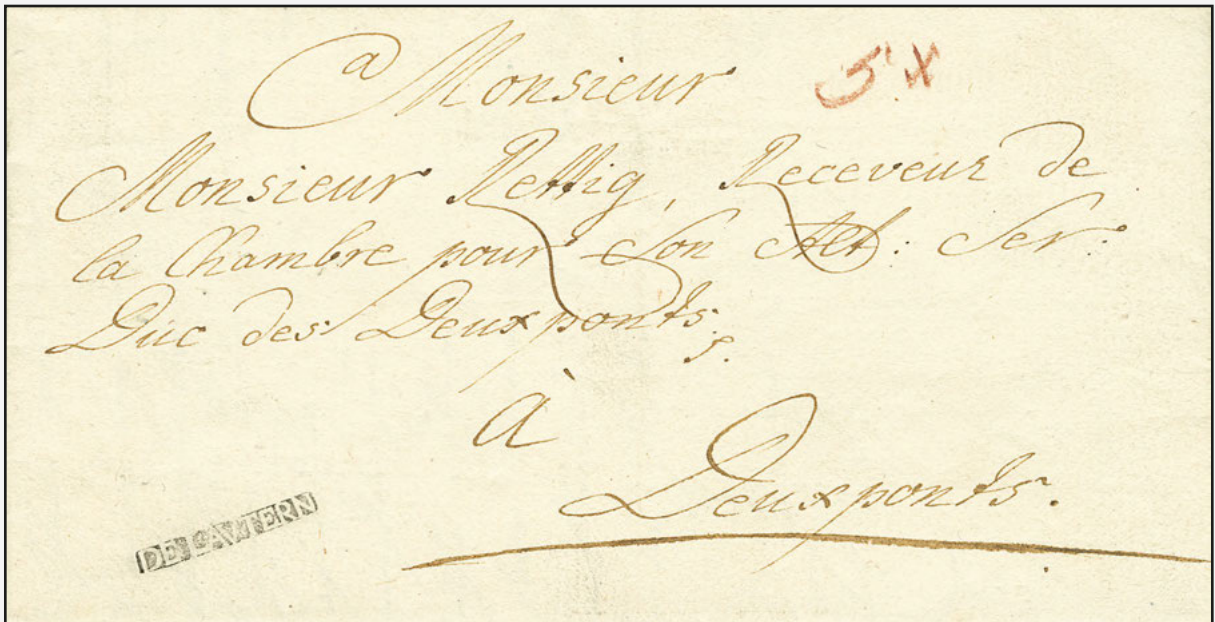 a Monsieur
5 x
Monsieur Rettig, Receveur de
la Chambre pour Son Alt: Ser:
Duc des Deuxponts.
p.
à
Deuxponts.
DE